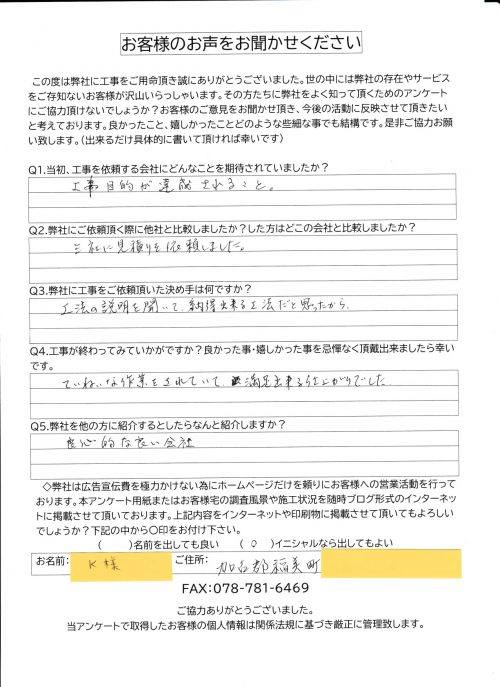 お客様のお声をお聞かせください
この度は弊社に工事をご用命頂き誠にありがとうございました。世の中には弊社の存在やサービス
をご存知ないお客様が沢山いらっしゃいます。その方たちに弊社をよく知って頂くためのアンケート
にご協力頂けないでしょうか？お客様のご意見をお聞かせ頂き、今後の活動に反映させて頂きたい
と考えております。良かったこと、嬉しかったことどのような些細な事でも結構です。是非ご協力お願
い致します。（出来るだけ具体的に書いて頂ければ幸いです）
Q1.当初、工事を依頼する会社にどんなことを期待されていましたか？
工事目的が達成されること。
Q2.弊社にご依頼頂く際に他社と比較しましたか？した方はどこの会社と比較しましたか？
三社に見積りを依頼しました。
Q3.弊社に工事をご依頼頂いた決め手は何ですか？
工法の説明を聞いて、納得出来る工法だと思ったから、
Q4.工事が終わってみていかがですか？良かった事・嬉しかった事を忌憚なく頂戴出来ましたら幸い
です。
ていねいな作業をされていて、満足出来る仕上がりでした。
Q5.弊社を他の方に紹介するとしたらなんと紹介しますか？
良心的な良い会社
◇弊社は広告宣伝費を極力かけない為にホームページだけを頼りにお客様への営業活動を行って
おります。本アンケート用紙またはお客様宅の調査風景や施工状況を随時ブログ形式のインターネッ
トに掲載させて頂いております。上記内容をインターネットや印刷物に掲載させて頂いてもよろしい
でしょうか？下記の中から〇印をお付け下さい。
（　　）名前を出しても良い　（ ○ ）イニシャルなら出してもよい
お名前： K様 ご住所： 加古郡稲美町
FAX：078-781-6469
ご協力ありがとうございました。
当アンケートで取得したお客様の個人情報は関係法規に基づき厳正に管理致します。